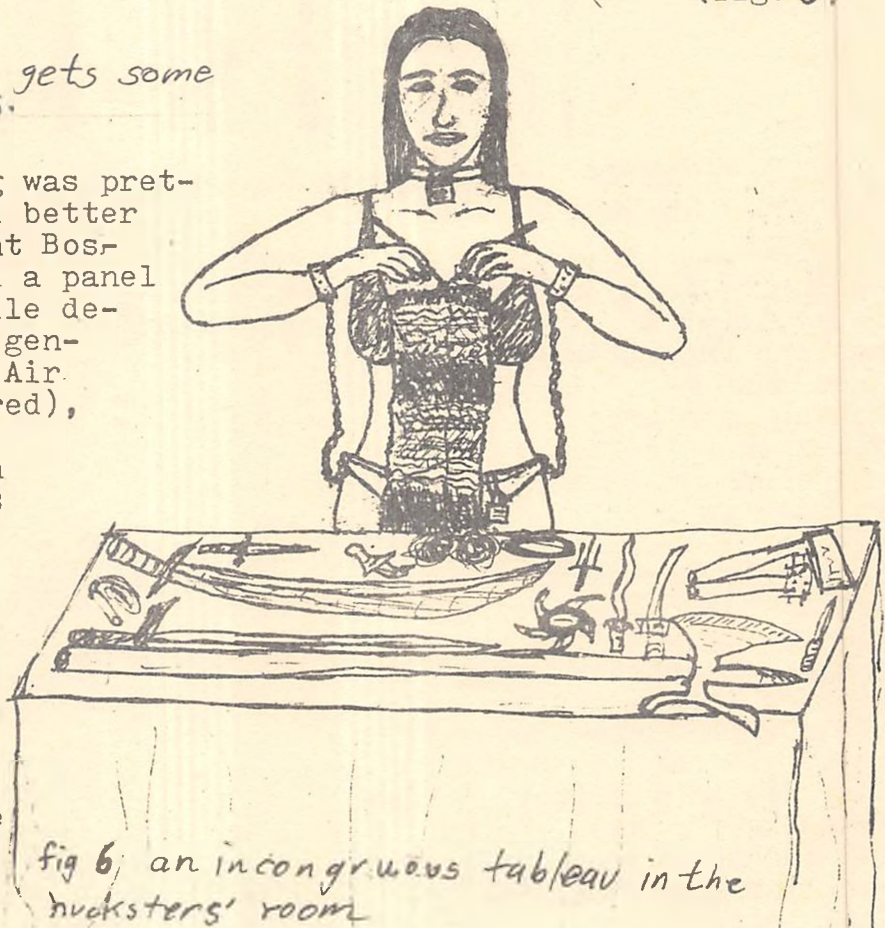 gets some
was pret-
better
at Bos-
a panel
ile de-
gen-
Air
red),
fig 6; an incongruous tableau in the
hucksters' room